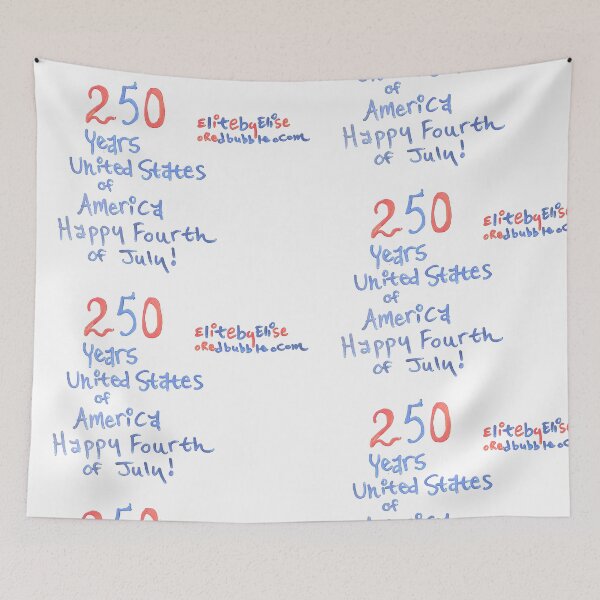 250
Years
United States
of
America
Happy Fourth
of July!
ElitebyElise
.Redbubble.com
250
Years
United States
of
America
Happy Fourth
of July!
ElitebyElise
.Redbubble.com
250
of
America
Happy Fourth
of July!
250
Years
United States
of
America
Happy Fourth
of July!
ElitebyElise
.Redbubble.co
250
Years
United States
of
America
ElitebyElise
.Redbubble.co